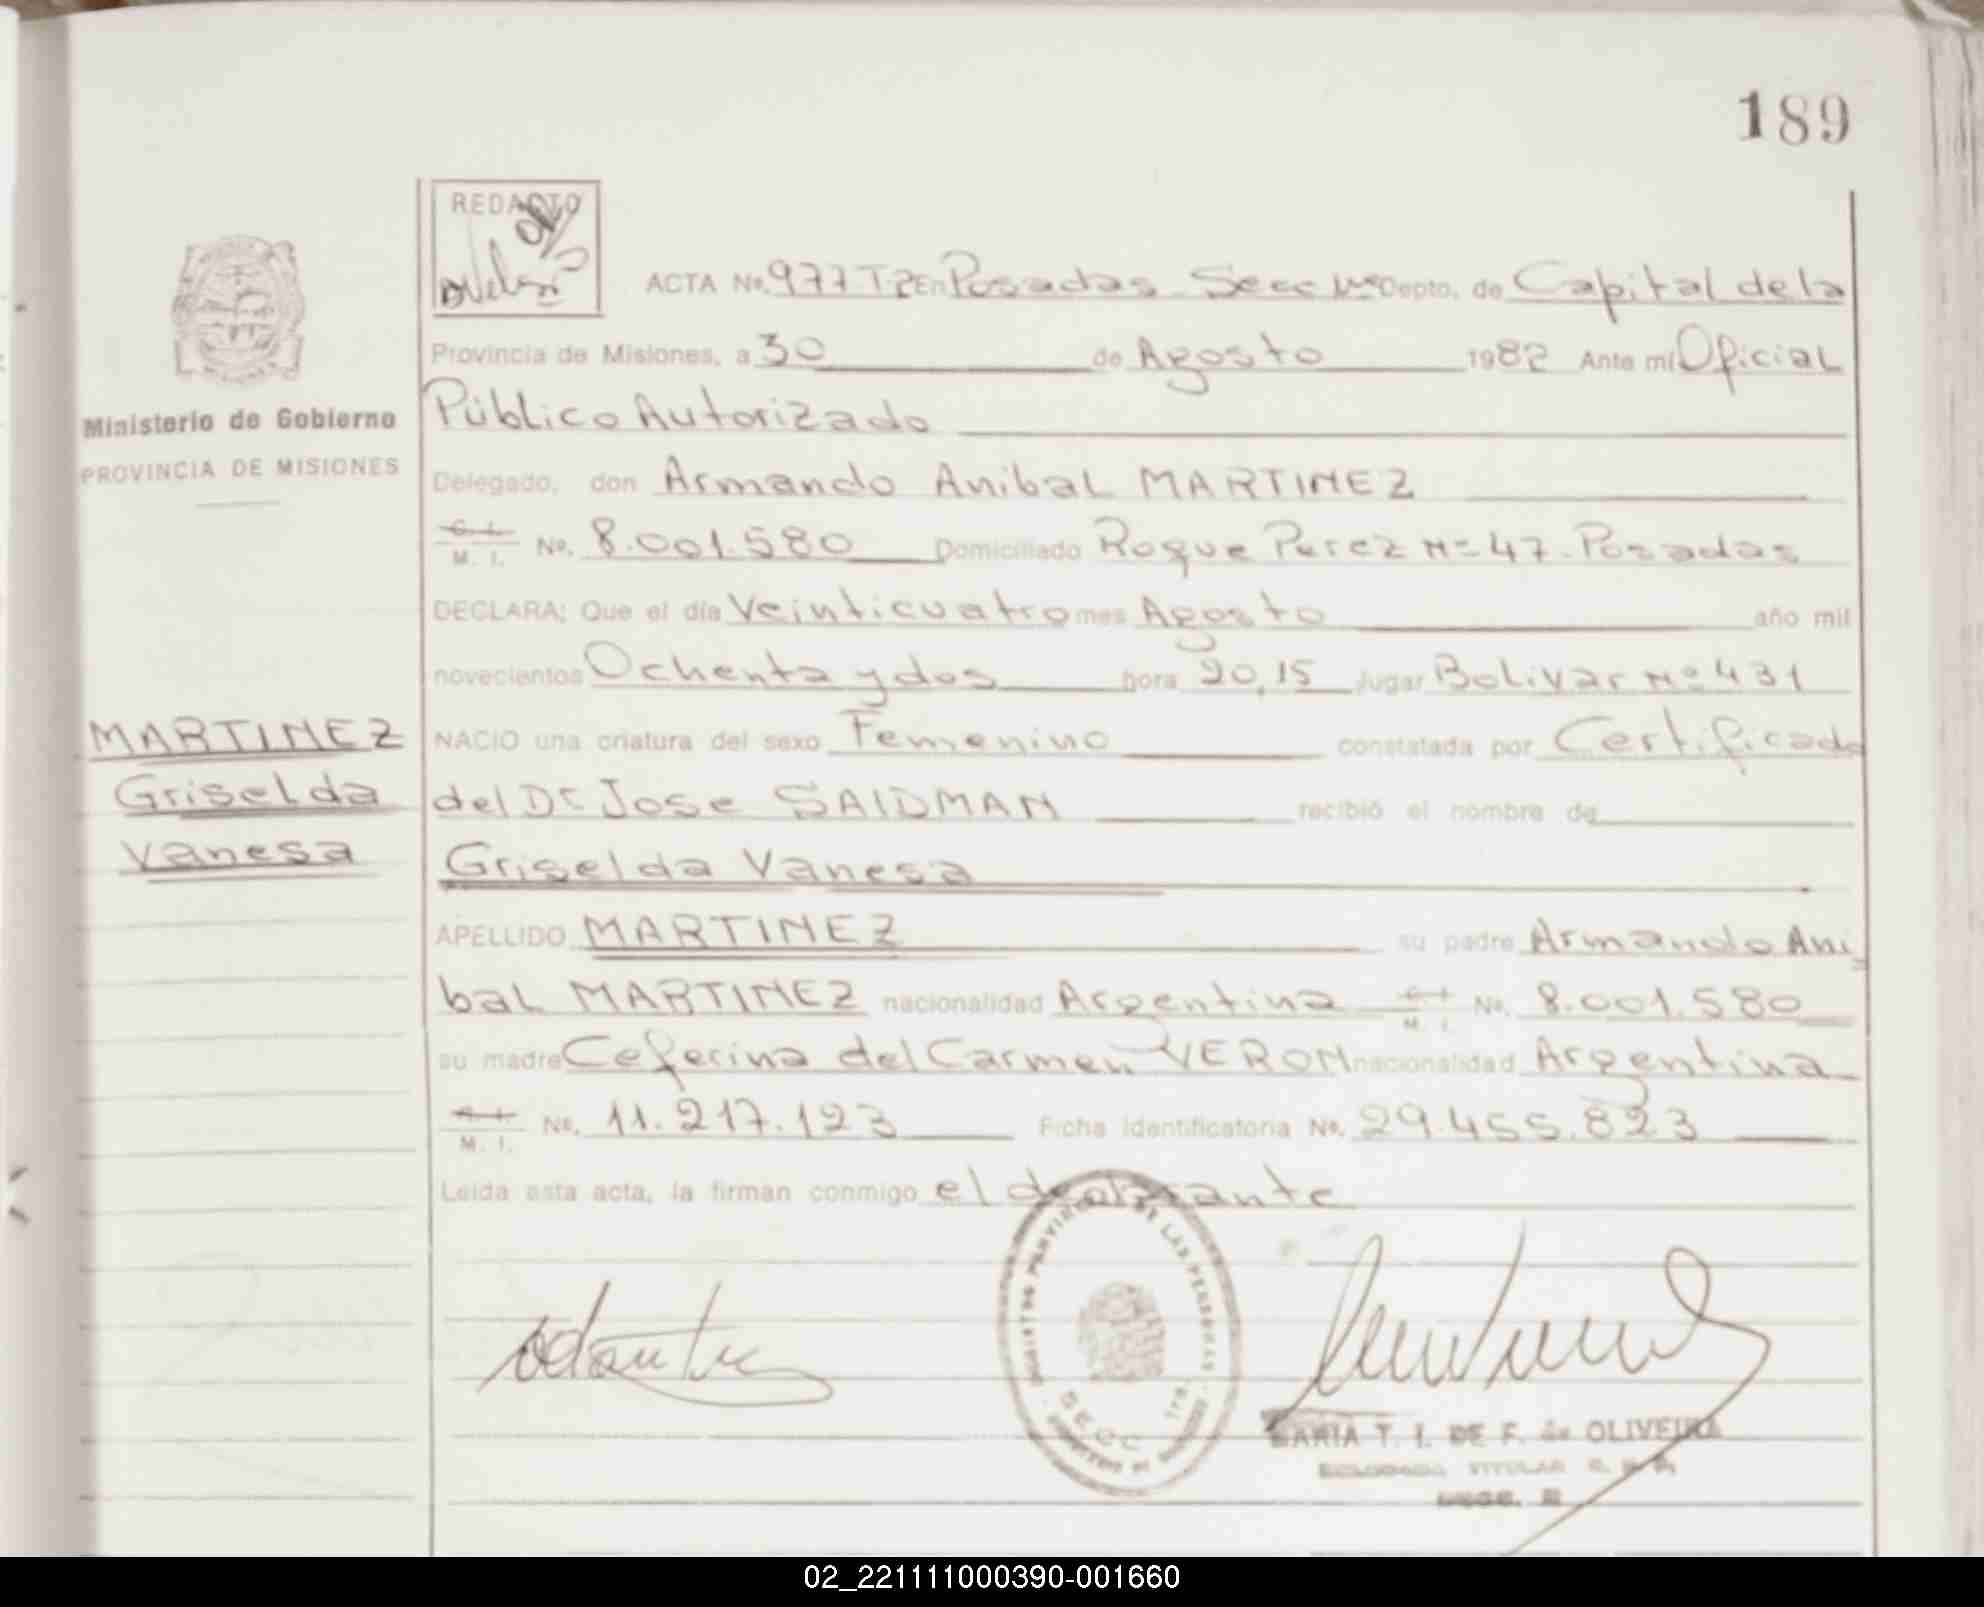 189
REDACTO
ACTA No. 977 T2 En Posadas Secc 1ra Depto. de Capital de la
Provincia de Misiones, a 30 de Agosto 1982 Ante mi Oficial
Público Autorizado
Ministerio de Gobierno
PROVINCIA DE MISIONES
Delegado, don Armando Anibal MARTINEZ
C. I. M. I. No. 8.001.580 Domiciliado Roque Perez Nº 47 - Posadas
DECLARA: Que el día Veinticuatro mes Agosto año mil
novecientos Ochenta y dos hora 20,15 lugar Bolivar Nº 431
MARTINEZ
Griselda
Vanesa
NACIO una criatura del sexo Femenino constatada por Certificado
del Dr Jose SAIDMAN recibió el nombre de
Griselda Vanesa
APELLIDO MARTINEZ su padre Armando Ani
bal MARTINEZ nacionalidad Argentina C. I. M. I. No. 8.001.580
su madre Ceferina del Carmen VERON nacionalidad Argentina
C. I. M. I. No. 11.217.123 Ficha Identificatoria No. 29.455.823
Leída esta acta, la firman conmigo el declarante
DE LAS PERSONAS
SECC 1ra.
MARIA T. I. DE F. de OLIVEIRA
02_221111000390-001660